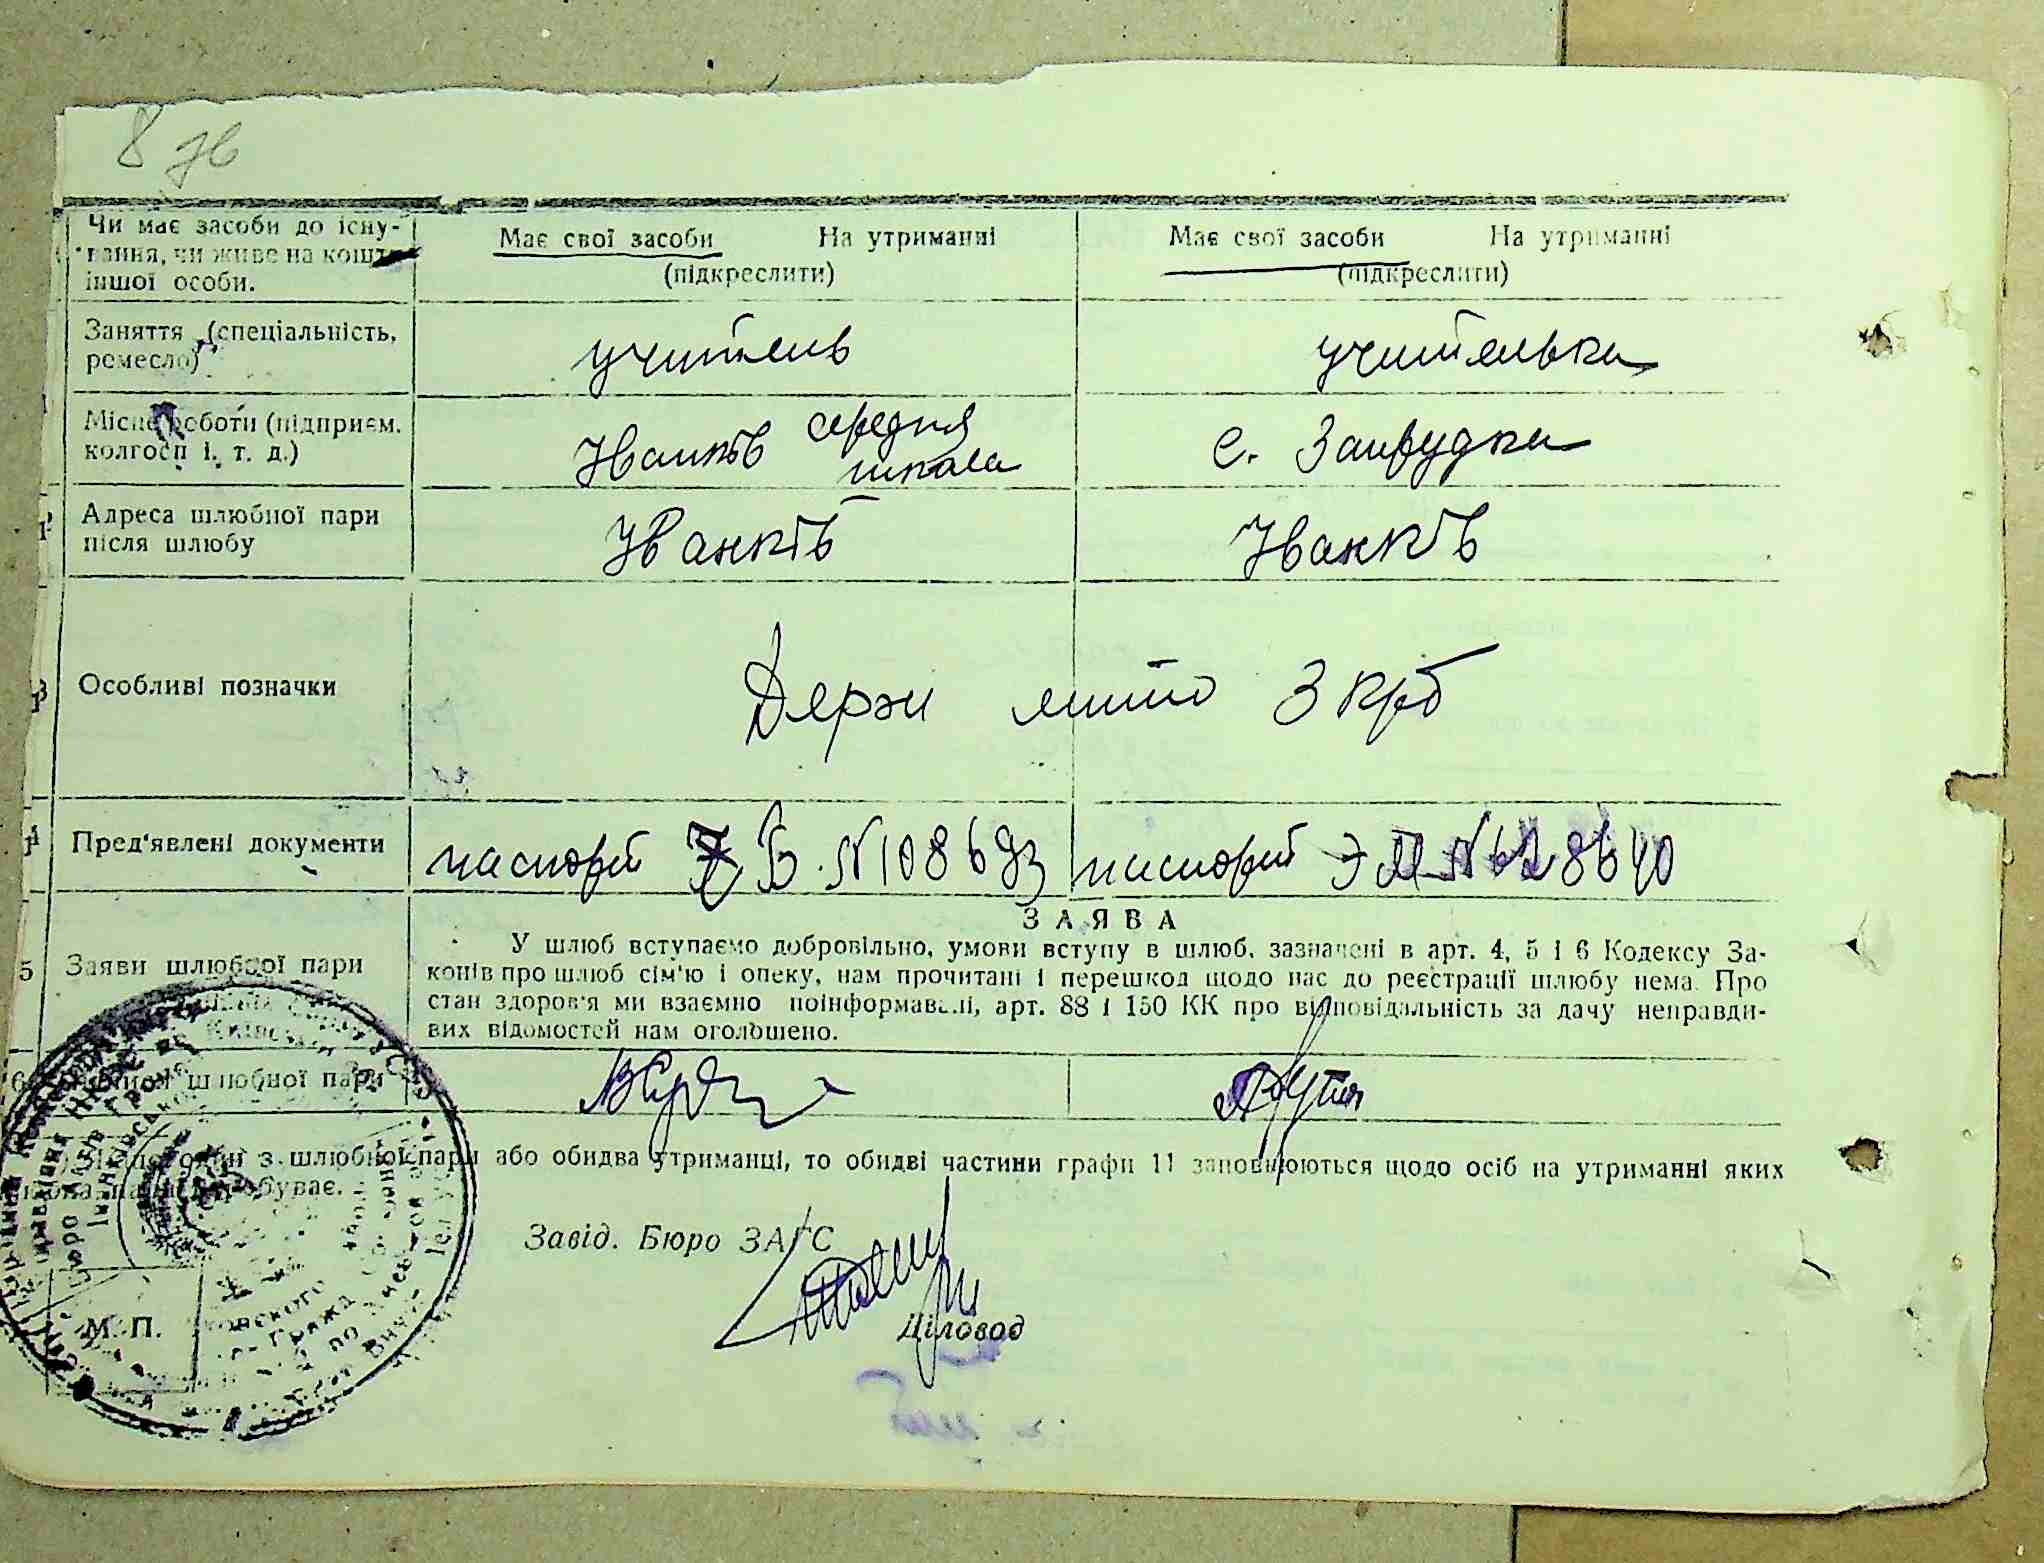 8 зв
Чи має засоби до існу-
вання, чи живе на кошти
іншої особи.
Має свої засоби На утриманні
(підкреслити)
Має свої засоби На утриманні
(підкреслити)
Заняття (спеціальність,
ремесло)
учитель
учителька
Місце роботи (підприєм.
колгосп і. т. д.)
Іванків середня
школа
с. Запрудка
Адреса шлюбної пари
після шлюбу
Іванків
Іванків
Особливі позначки
Держ мито 3 крб
Пред'явлені документи
паспорт Б. №108693
паспорт ЭМ №628640
5
Заяви шлюбної пари
ЗАЯВА
У шлюб вступаємо добровільно, умови вступу в шлюб, зазначені в арт. 4, 5 і 6 Кодексу За-
конів про шлюб сім'ю і опеку, нам прочитані і перешкод щодо нас до реєстрації шлюбу нема. Про
стан здоров'я ми взаємно поінформавані, арт. 88 і 150 КК про відповідальність за дачу неправди-
вих відомостей нам оголошено.
6
шлюбної пари
з шлюбної пари або обидва утриманці, то обидві частини графи 11 заповнюються щодо осіб на утриманні яких
Завід. Бюро ЗАГС
Діловод
М. П.